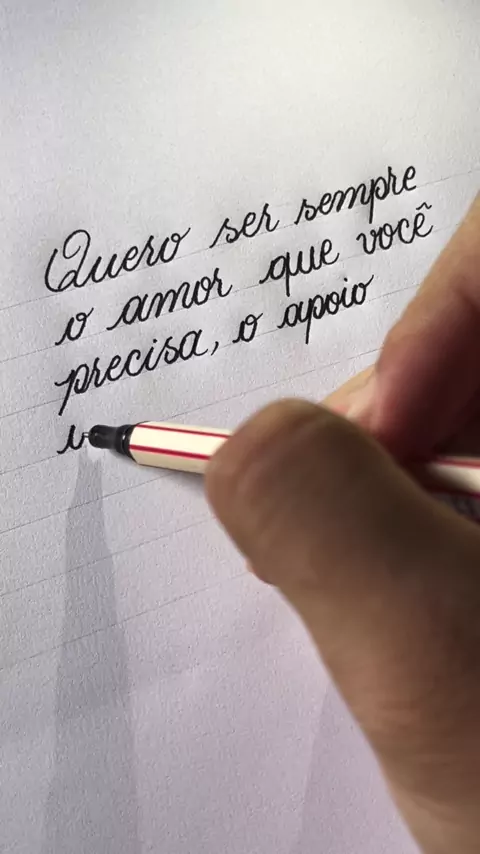 Quero ser sempre
o amor que você
precisa, o apoio